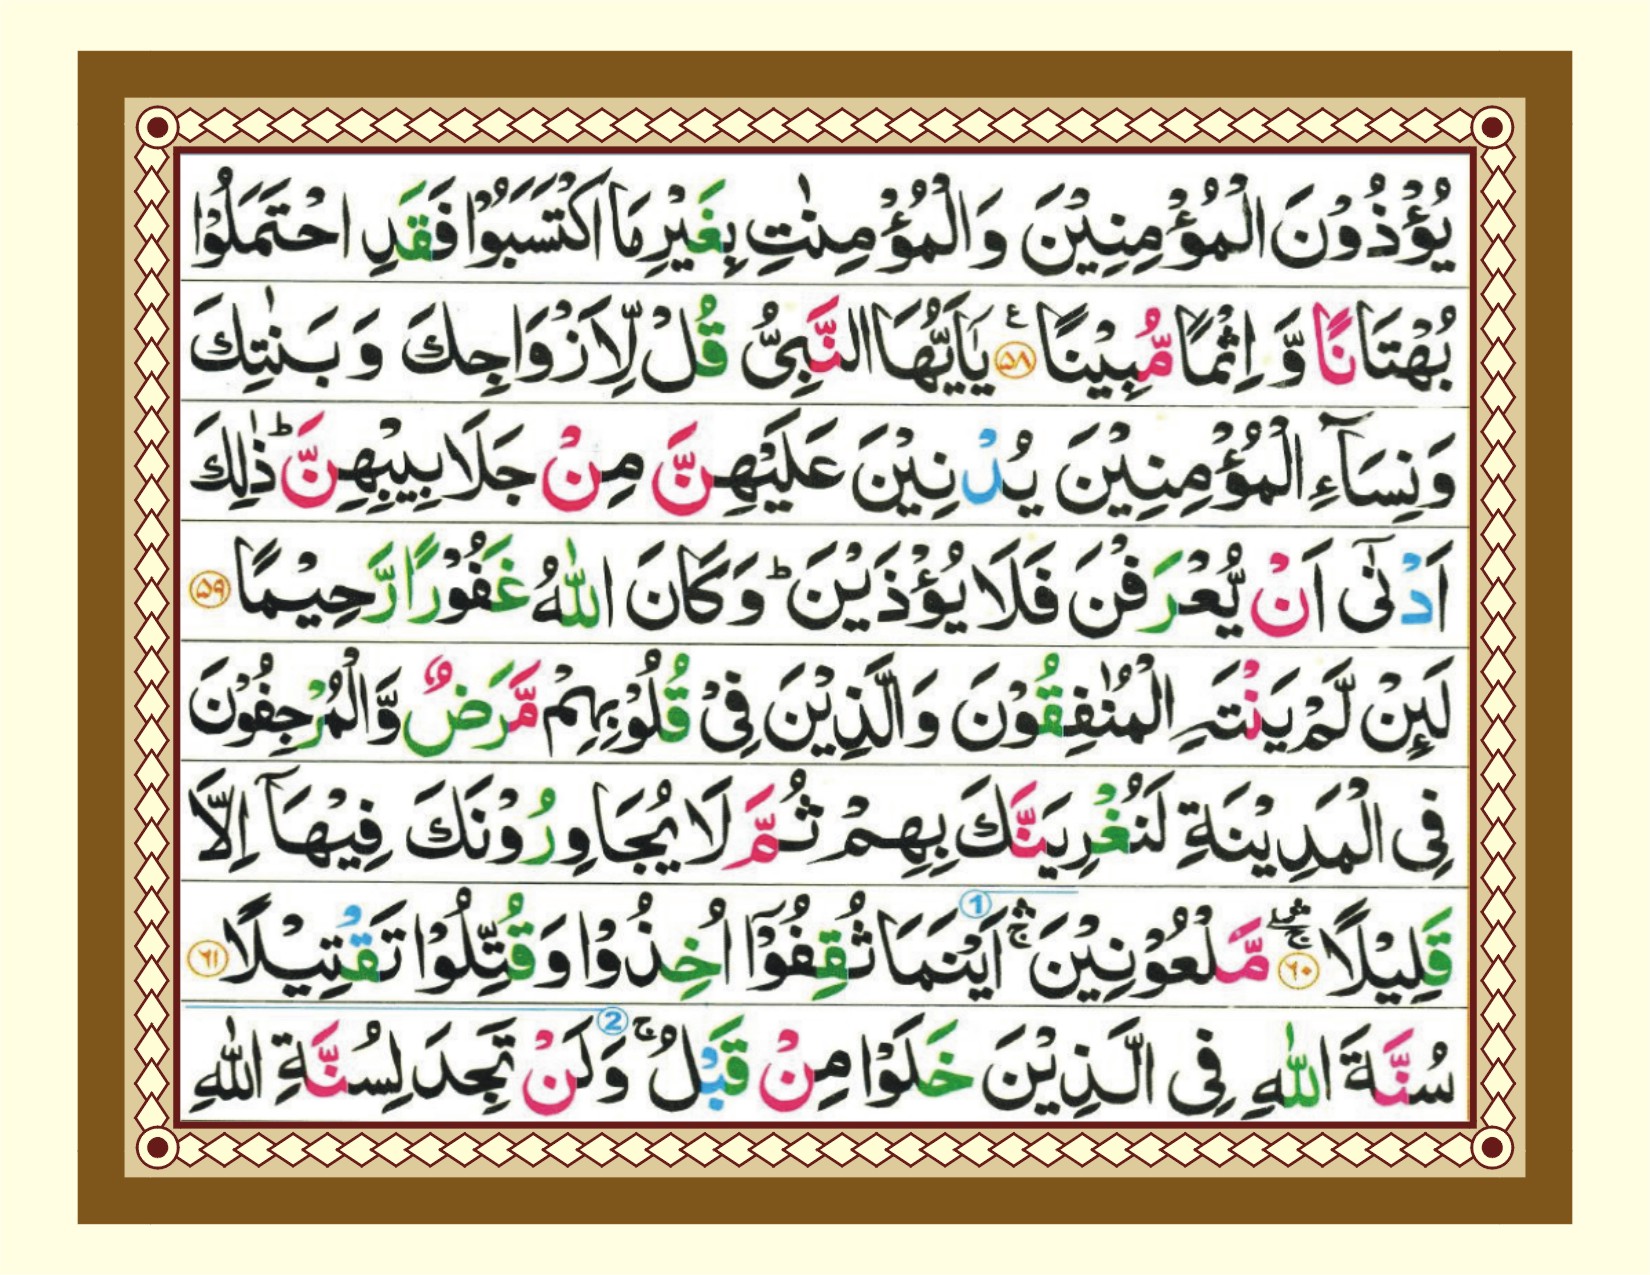 يُؤْذُوْنَ الْمُؤْمِنِيْنَ وَالْمُؤْمِنٰتِ بِغَيْرِ مَا اكْتَسَبُوْا فَقَدِ احْتَمَلُوْا
بُهْتَانًا وَّ اِثْمًا مُّبِيْنًا ۵۸ ع يٰۤاَيُّهَا النَّبِىُّ قُلْ لِّاَزْوَاجِكَ وَ بَنٰتِكَ
وَنِسَآءِ الْمُؤْمِنِيْنَ يُدْنِيْنَ عَلَيْهِنَّ مِنْ جَلَابِيْبِهِنَّ ؕ ذٰلِكَ
اَدْنٰٓى اَنْ يُّعْرَفْنَ فَلَا يُؤْذَيْنَ ؕ وَكَانَ اللّٰهُ غَفُوْرًا رَّحِيْمًا ۵۹
لَئِنْ لَّمْ يَنْتَهِ الْمُنٰفِقُوْنَ وَالَّذِيْنَ فِىْ قُلُوْبِهِمْ مَّرَضٌ وَّالْمُرْجِفُوْنَ
فِى الْمَدِيْنَةِ لَنُغْرِيَنَّكَ بِهِمْ ثُمَّ لَا يُجَاوِرُوْنَكَ فِيْهَاۤ اِلَّا
قَلِيْلًا ۶۰ مَّلْعُوْنِيْنَ ۛۚ 1 اَيْنَمَا ثُقِفُوْۤا اُخِذُوْا وَقُتِّلُوْا تَقْتِيْلًا ۶۱
سُنَّةَ اللّٰهِ فِى الَّذِيْنَ خَلَوْا مِنْ قَبْلُ ۚ 2 وَلَنْ تَجِدَ لِسُنَّةِ اللّٰهِ